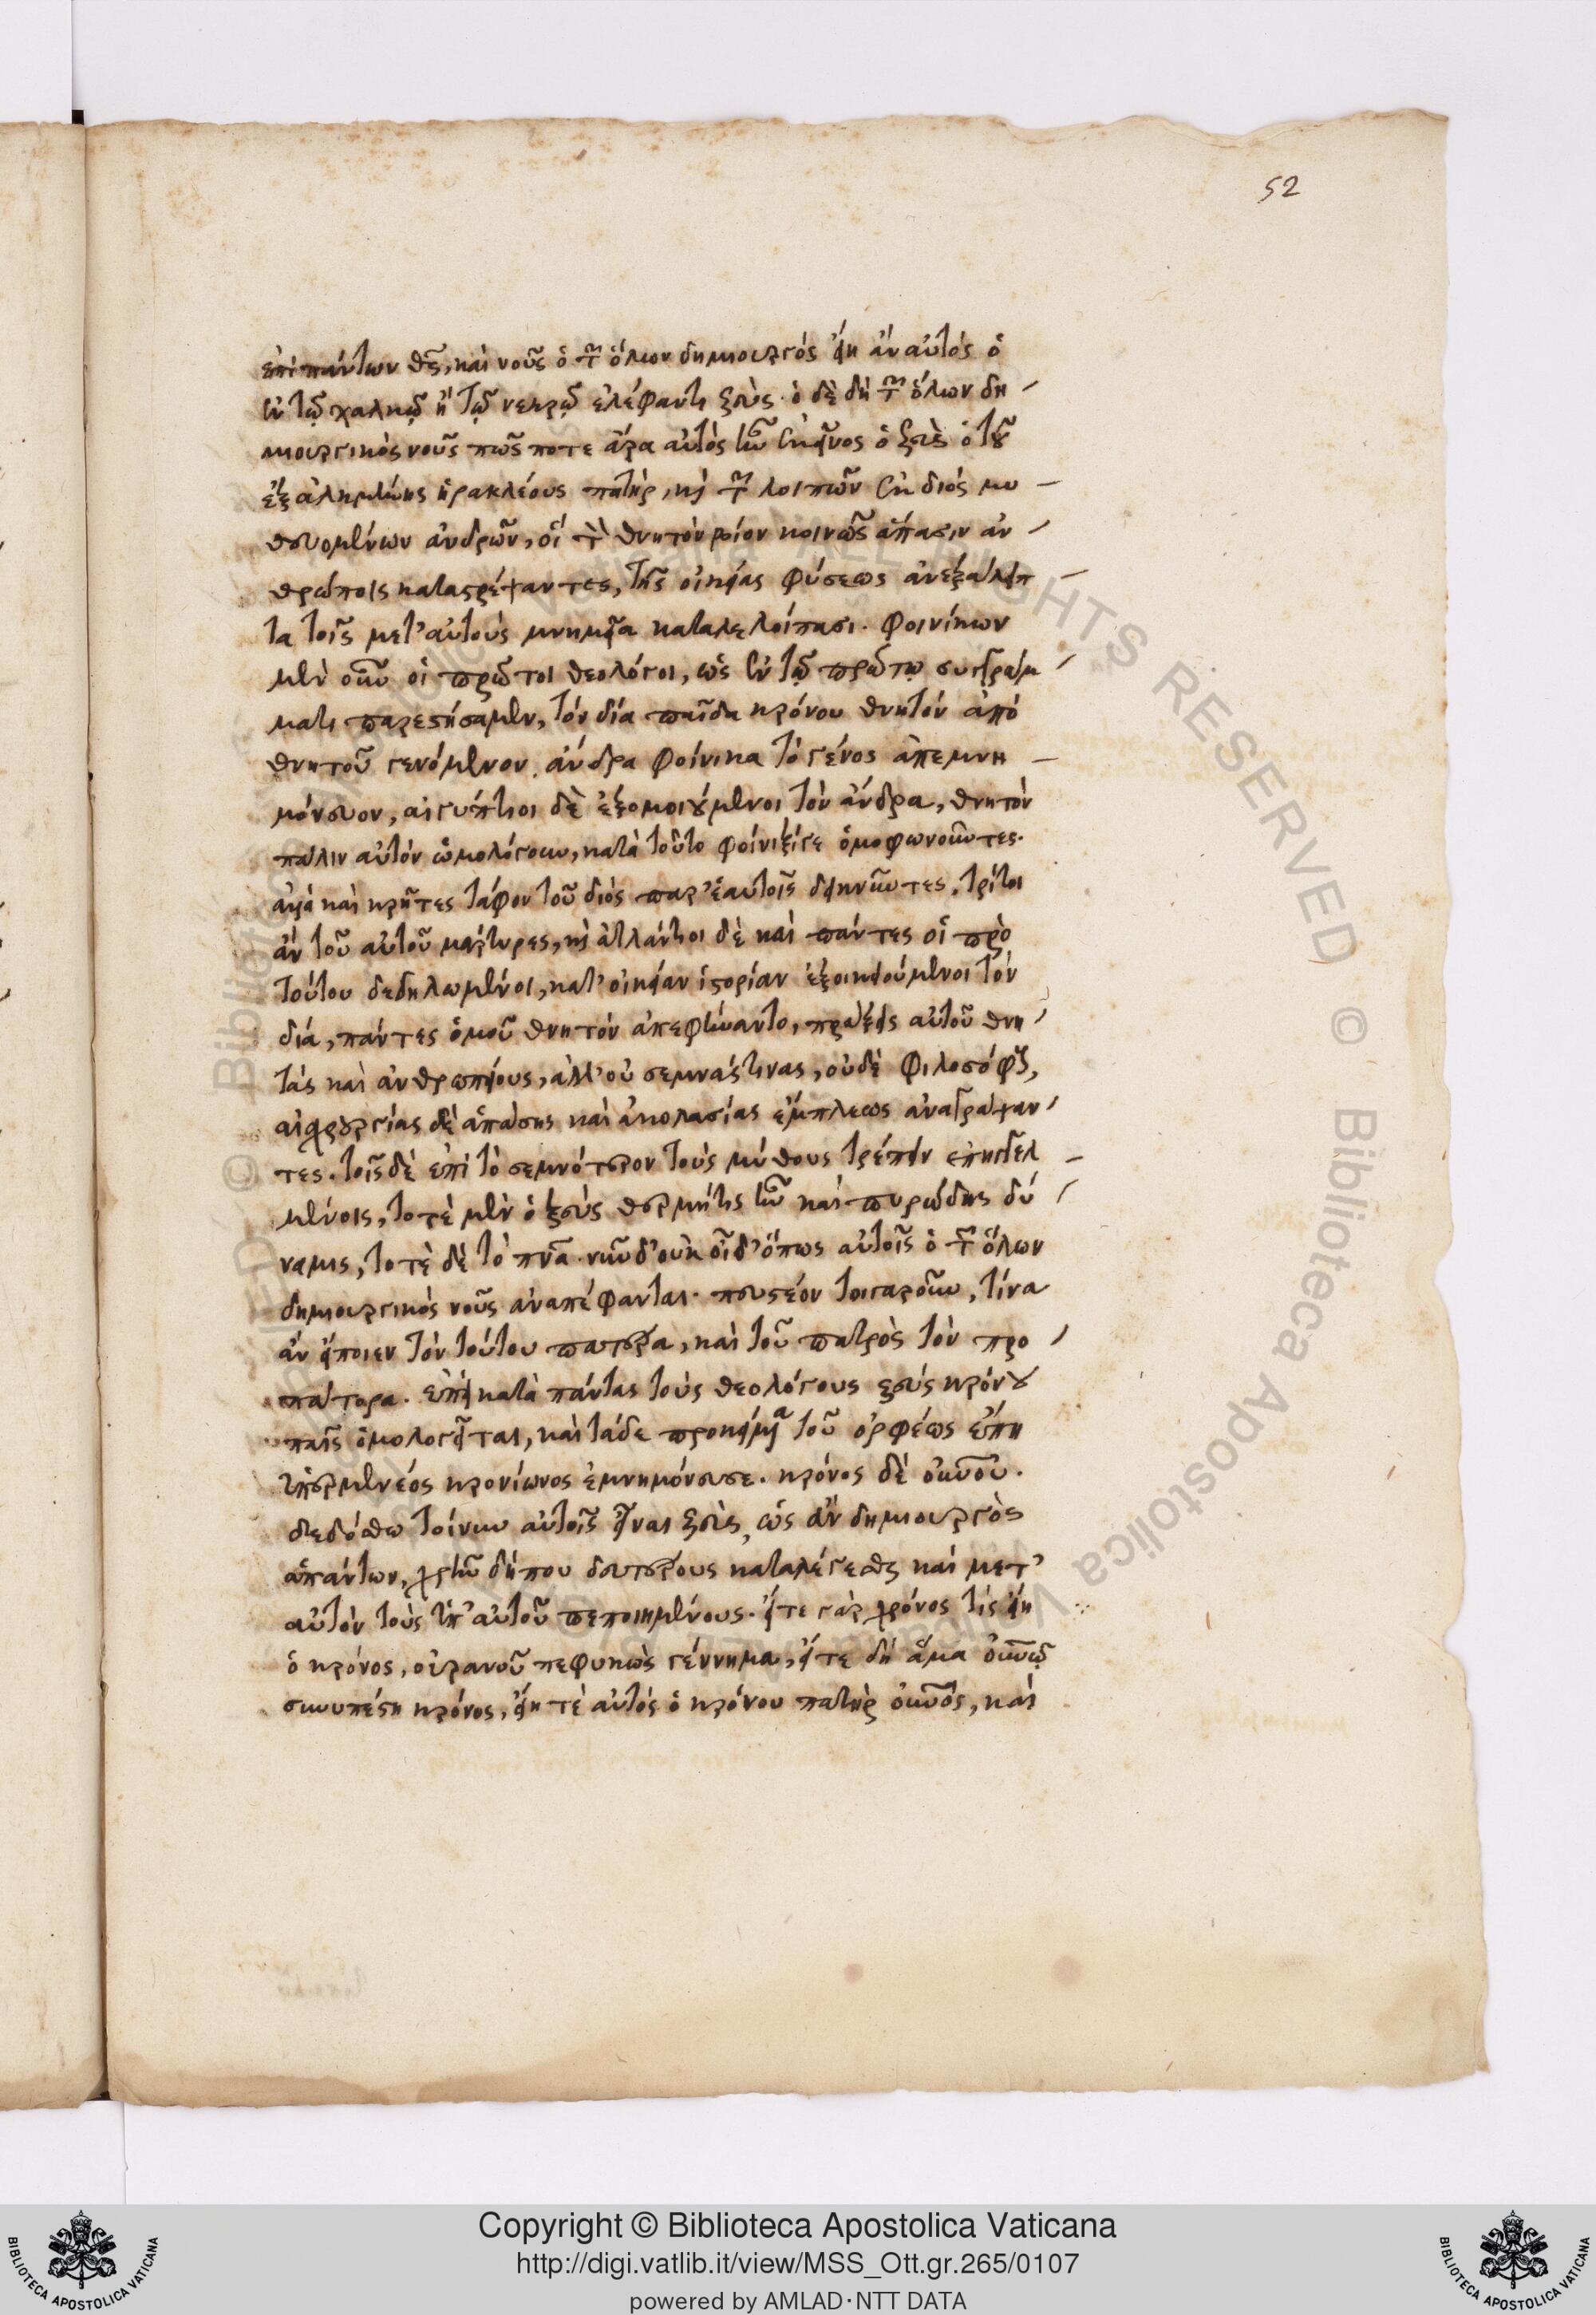 52
ἐπὶ πάντων θς, καὶ νοῦς ὁ τῶν ὅλων δημιουργός εἴη ἂν αὐτὸς ὁ
ἐν τῷ χαλκῷ ἢ τῷ νεκρῷ ἐλέφαντι ζεύς. ὁ δὲ δὴ τῶν ὅλων δη
μιουργικὸς νοῦς πῶς ποτε ἄρα αὐτὸς ἦν ἐκεῖνος ὁ ζεὺς ὁ τοῦ
ἐξ ἀλκμήνης ἡρακλέους πατήρ, καὶ τῶν λοιπῶν ἐκ διός μυ
θευομένων ἀνδρῶν, οἳ τὸν θνητὸν βίον κοινῶς ἅπασιν ἀν
θρώποις καταστρέψαντες, τῆς οἰκείας φύσεως ἀνεξάλειπ
τα τοῖς μετ' αὐτοὺς μνημεῖα καταλελοίπασι. φοινίκων
μὲν οὖν οἱ πρῶτοι θεολόγοι, ὡς ἐν τῷ πρώτῳ συγγράμ
ματι παρεστήσαμεν, τὸν δία παῖδα κρόνου θνητὸν ἀπὸ
θνητοῦ γενόμενον, ἄνδρα φοίνικα τὸ γένος ἀπεμνη
μόνευον, αἰγύπτιοι δὲ ἐξομοιούμενοι τὸν ἄνδρα, θνητὸν
πάλιν αὐτὸν ὡμολόγουν, κατὰ τοῦτο φοίνιξί γε ὁμοφωνοῦντες.
ἀλλὰ καὶ κρῆτες τάφον τοῦ διὸς παρ' ἑαυτοῖς δεικνύντες, τρίτοι
ἂν τοῦ αὐτοῦ μάρτυρες, καὶ ἀτλάντιοι δὲ καὶ πάντες οἱ πρὸ
τούτου δεδηλωμένοι, κατ' οἰκείαν ἱστορίαν ἐξοικειούμενοι τὸν
δία, πάντες ὁμοῦ θνητὸν ἀπεφήναντο, πράξεις αὐτοῦ θνη
τὰς καὶ ἀνθρωπείους, ἀλλ' οὐ σεμνάς τινας, οὐδὲ φιλοσόφους,
αἰσχρουργίας δὲ ἁπάσης καὶ ἀκολασίας ἔμπλεως ἀναγράψαν
τες. τοῖς δὲ ἐπὶ τὸ σεμνότερον τοὺς μύθους τρέπειν ἐπηγγελ
μένοις, τοτὲ μὲν ὁ ζεὺς θερμή τις ἦν καὶ πυρώδης δύ
ναμις, τοτὲ δὲ τὸ πνα. νῦν δ' οὐκ οἶδ' ὅπως αὐτοῖς ὁ τῶν ὅλων
δημιουργικὸς νοῦς ἀναπέφανται. πευστέον τοιγαροῦν, τίνα
ἂν εἴποιεν τὸν τούτου πατέρα, καὶ τοῦ πατρὸς τὸν προ
πάτορα. ἐπεὶ κατὰ πάντας τοὺς θεολόγους ζεὺς κρόνου
παῖς ὁμολογεῖται, καὶ τάδε προκείμενα τοῦ ὀρφέως ἔπη
ὑπερμενέος κρονίωνος ἐμνημόνευσε. κρόνος δὲ οὐνοῦ.
δεδόσθω τοίνυν αὐτοῖς εἶναι ζεὺς, ὡς ἂν δημιουργὸς
ἁπάντων, χρῆν δήπου δευτέρους καταλέγεσθαι καὶ μετ'
αὐτὸν τοὺς ὑπ' αὐτοῦ πεποιημένους. εἴτε γὰρ χρόνος τίς εἴη
ὁ κρόνος, οὐρανοῦ πεφυκὼς γέννημα, εἴτε δὴ ἅμα οὐνῷ
συνυπέστη κρόνος, εἴη τὲ αὐτὸς ὁ κρόνου πατὴρ οὐνός, καὶ
© Biblioteca Apostolica Vaticana ALL RIGHTS RESERVED © Biblioteca Apostolica Vaticana
Copyright © Biblioteca Apostolica Vaticana
http://digi.vatlib.it/view/MSS_Ott.gr.265/0107
powered by AMLAD·NTT DATA
BIBLIOTECA APOSTOLICA VATICANA
BIBLIOTECA APOSTOLICA VATICANA